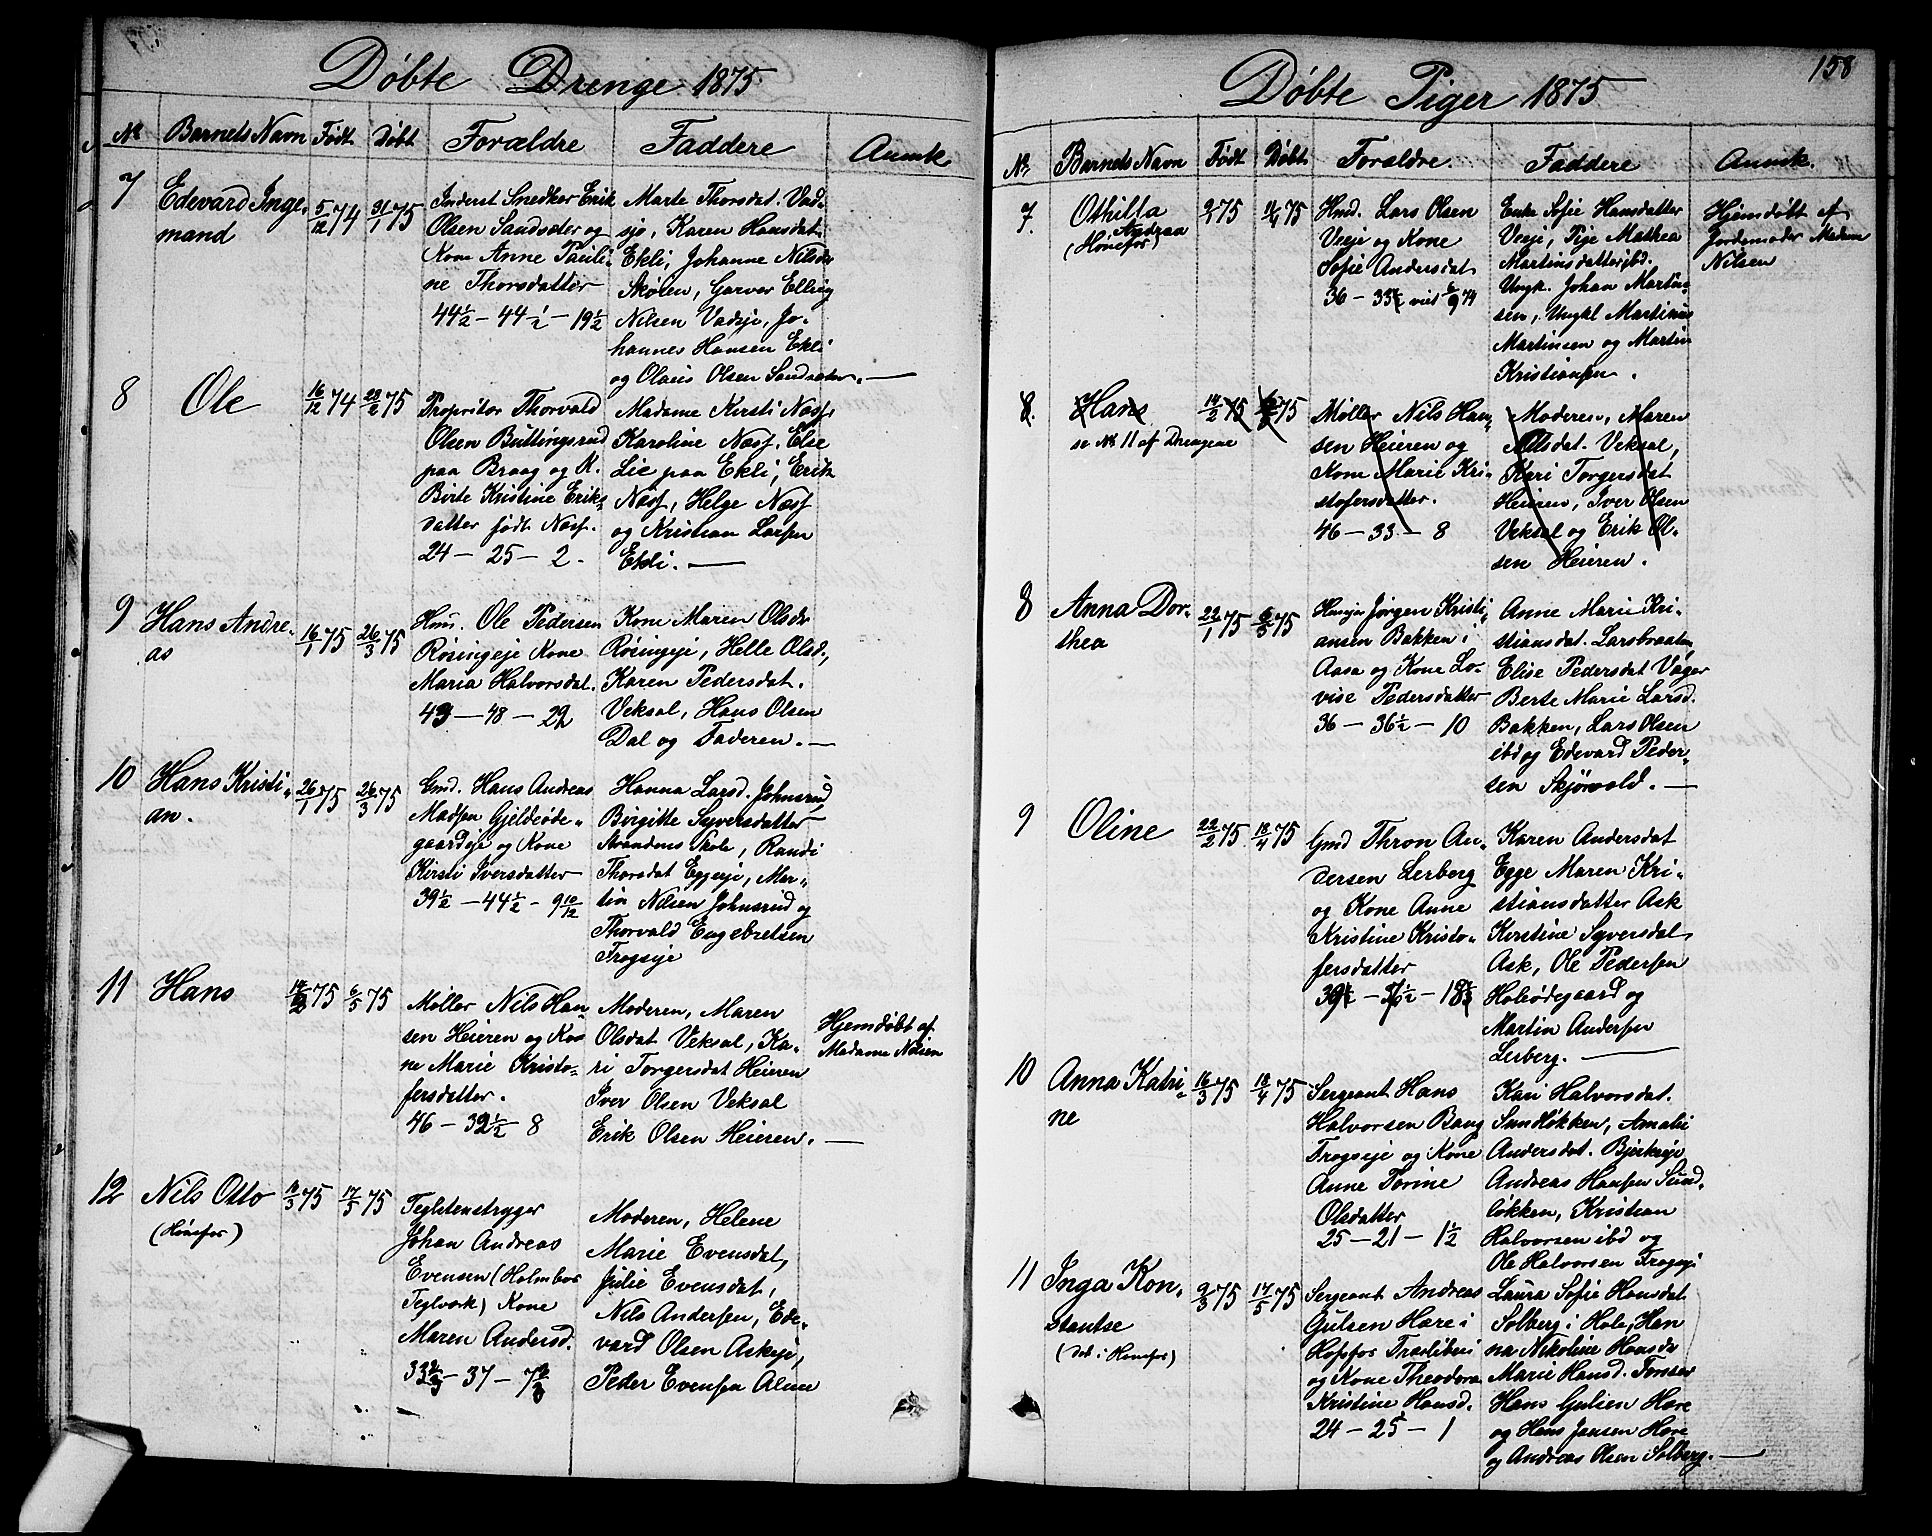 Døbte Drenge 1875
No Barnets Navn Født Døbt Forældre Faddere Anmk
7 Edevard Inge-
mand
5/12 74 31/1 75
Inderst Snedker Erik
Olsen Sandsæter og
Kone Anne Pauli-
ne Thorsdatter
44½ - 44½ - 19½
Marte Thorsdat. Vad-
sje, Karen Hansdat.
Ekli, Johanne Nilsdr
Skøien, Garver Elling
Nilsen Vadsje, Jo-
hannes Hansen Ekli
og Olaus Olsen Sandsæter. —
8 Ole
16/12 74 28/2 75
Propritær Thorvald
Olsen Buttingsrud
paa Braag og K.
Birte Kristine Eriks
datter født Næss.
24 - 25 - 2.
Madame Kirsti Næss.
Karoline Næss. Else
Lie paa Ekli, Erik
Næss, Helge Næss
og Kristian Larssen
Ekli. —
9 Hans Andre-
as
16/1 75 26/3 75
Hmd. Ole Pedersen
Røsingeje Kone
Maria Halvorsdat.
43 - 48 - 22
Kone Maren Olsdr
Røsingeje, Helle Olsd.,
Karen Pedersdat.
Veksal, Hans Olsen
Dal og Faderen. —
10 Hans Kristi-
an.
26/1 75 26/3 75
Gmd. Hans Andreas
Madssen Gjeldeøde-
gaardeje og Kone
Kirsti Iversdatter
39½ - 44½ - 9 10/12
Hanna Larsd. Johnsrud,
Birgitte Syversdatter
Strandens Skole, Randi
Thorsdat Eggeje, Mar-
tin Nilsen Johnsrud og
Thorvald Engebretsen
Frogseje
11 Hans
14/2 75 6/5 75
Møller Nils Han
sen Heieren og Ko-
ne Marie Kristo-
fersdatter.
46 - 32½ - 8
Moderen, Maren
Olsdat Veksal, Ka-
ri Torgersdat Heieren
Iver Olsen Veksal
Erik Olsen Heieren. —
Hjemdøbt af
Madame Nilsen
12 Nils Otto
(Hønefos)
75 17/5 75
Teglstenstryger
Johan Andreas
Evensen (Holmbos
Teglverk) Kone
Maren Andersd.
Moderen, Helene
Marie Evensdat,
Julie Evensdat,
Nils Anderssen, Ede-
vard Olsen Askeje,
Peder Evenssen Alme
158
Døbte Piger 1875
No Barnets Navn Født Døbt Forældre Faddere Anmk.
7. Othilla
Andrea
(Hønefos)
75 75
Hmd. Lars Olsen
Veeje og Kone
Sofie Andersdat
Enke Sofie Hansdatter
Veeje, Pige Mathea
Martinsdatter ibd.
Ungk. Johan Martin-
sen, Ungkl Martinius
Martinsen og Martin
Kristiansen.
Hjemdøbt af
Jordemoder Madam
Nilsen
8. Hans
se No 11 af Drengene
14/2 75 75
Møller Nils Han-
sen Heieren og
Kone Marie Kri-
stofersdatter.
46 - 33 - 8
Moderen, Maren
Olsdat. Veksal,
Kari Torgersdat
Heieren, Iver Olsen
Veksal og Erik Ol-
sen Heieren.
8 Anna Dor-
thea
22/1 75 75
Jørgen Kristi-
ansen Bakken i
Aasa og Kone Lo-
vise Pedersdatter
36 - 36½ - 10
Anne Marie Kri-
stiansdat. Larsbraaten,
Elise Pedersdat Vager
Berte Marie Larsd.
Bakken, Lars Olsen
ibd og Edevard Peder-
sen Skjørvold. —
9 Oline
22/2 75 18/4 75
Gmd Thron An-
dersen Lerberg
og Kone Anne
Kristine Kristo-
fersdatter
Karen Andersdat
Egge Maren Kri-
stiansdatter Ask
Kirstine Syversdat
Ask, Ole Pederssen
Holeødegaard og
Martin Anderssen
Lerberg. —
10 Anna Katri-
ne
16/3 75 18/4 75
Sergeant Hans
Halvorsen Bang
Frogseje og Kone
Anne Torine
Olsdatter
25 - 21 - 1½
Kari Halvorsdat.
Sundløkken, Amalie
Andersdat. Bjerkeje
Andreas Hanssen Sund-
løkken, Kristian
Halvorsen ibd og
Ole Halvorsen Frogseje
11 Inga Kon-
stantse
(Døb. i Hønefos)
9/3 75 17/5 75
Sergeant Andreas
Gulsen Hare i
og Kone Theodora
Kristine Hansd.
24 - 25 - 1
Laura Sofie Hansdat
Solberg i Hole, Han
na Nikoline Hansdr
Marie Hansd.
Hans Gulsen Hare
og Hans Jensen Hare
og Andreas Olsen Solberg. —